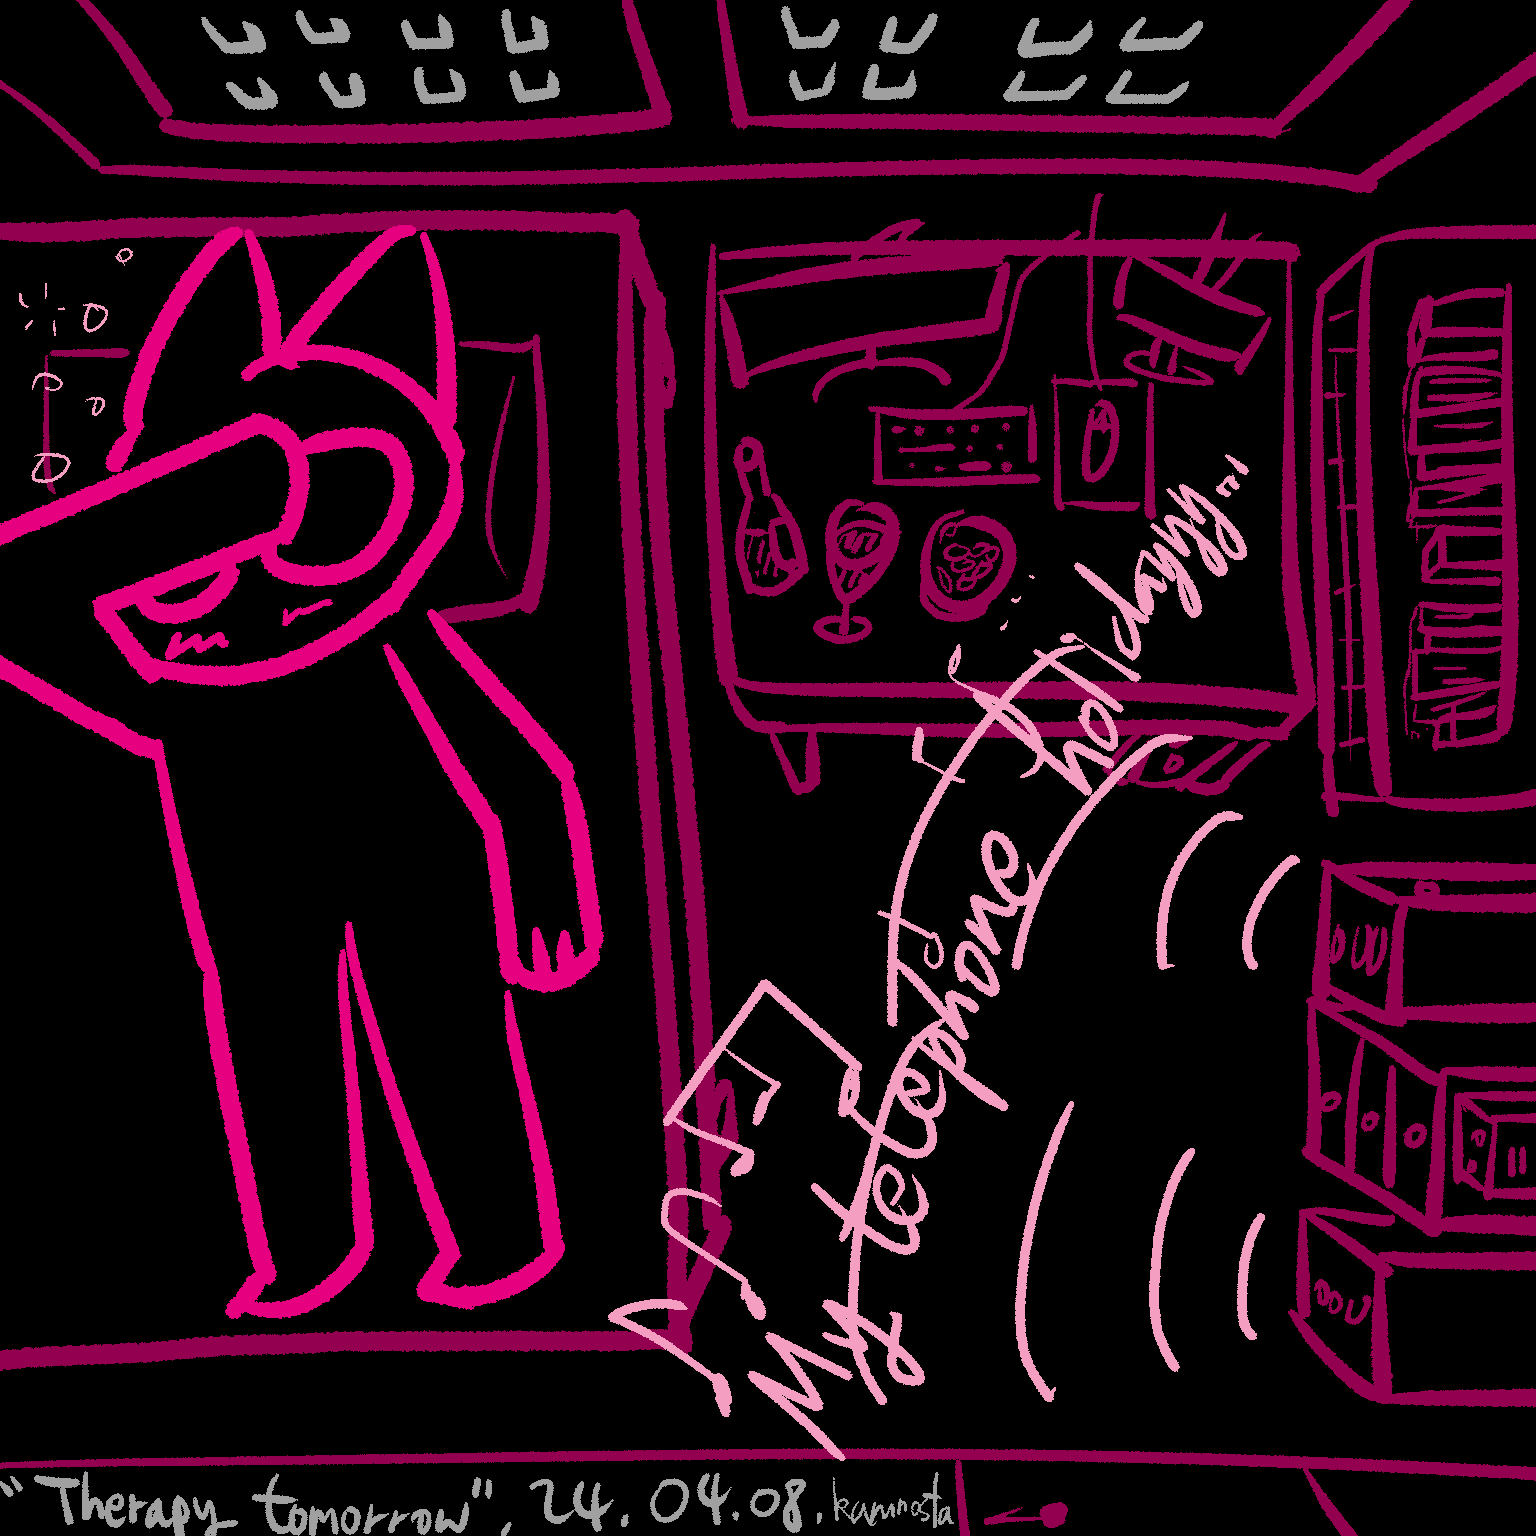 My telephone holidayyy...
"Therapy tomorrow", 24.04.08. kamnosta